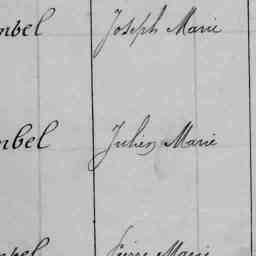 mbel Joseph Marie
mbel Julien Marie
mbel Pierre Marie